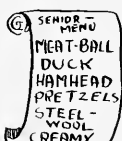 G
SENIOR-
MENU
MEAT-BALL
DUCK
HAMHEAD
PRETZELS
STEEL-
WOOL
CREAMY